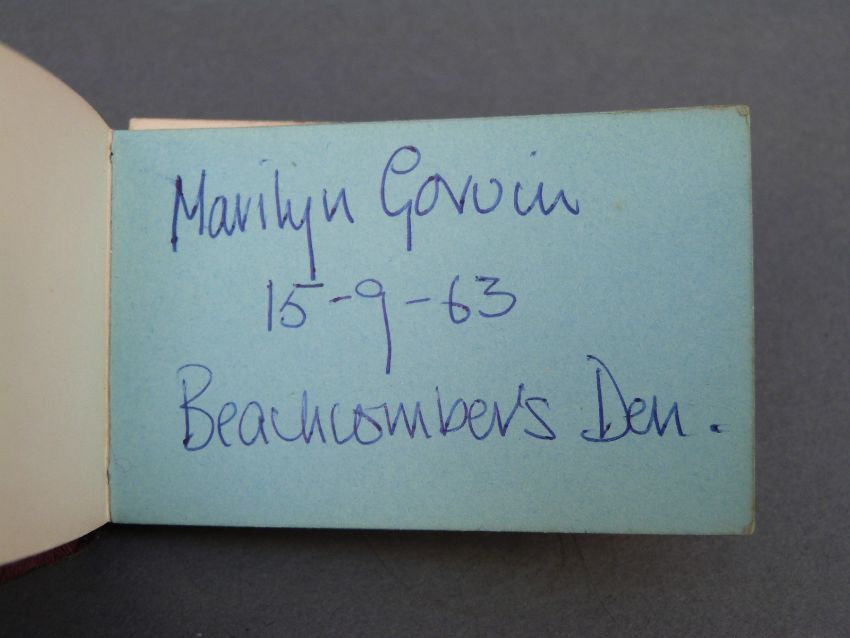 Marilyn Gorvin
15-9-63
Beachcomber's Den.